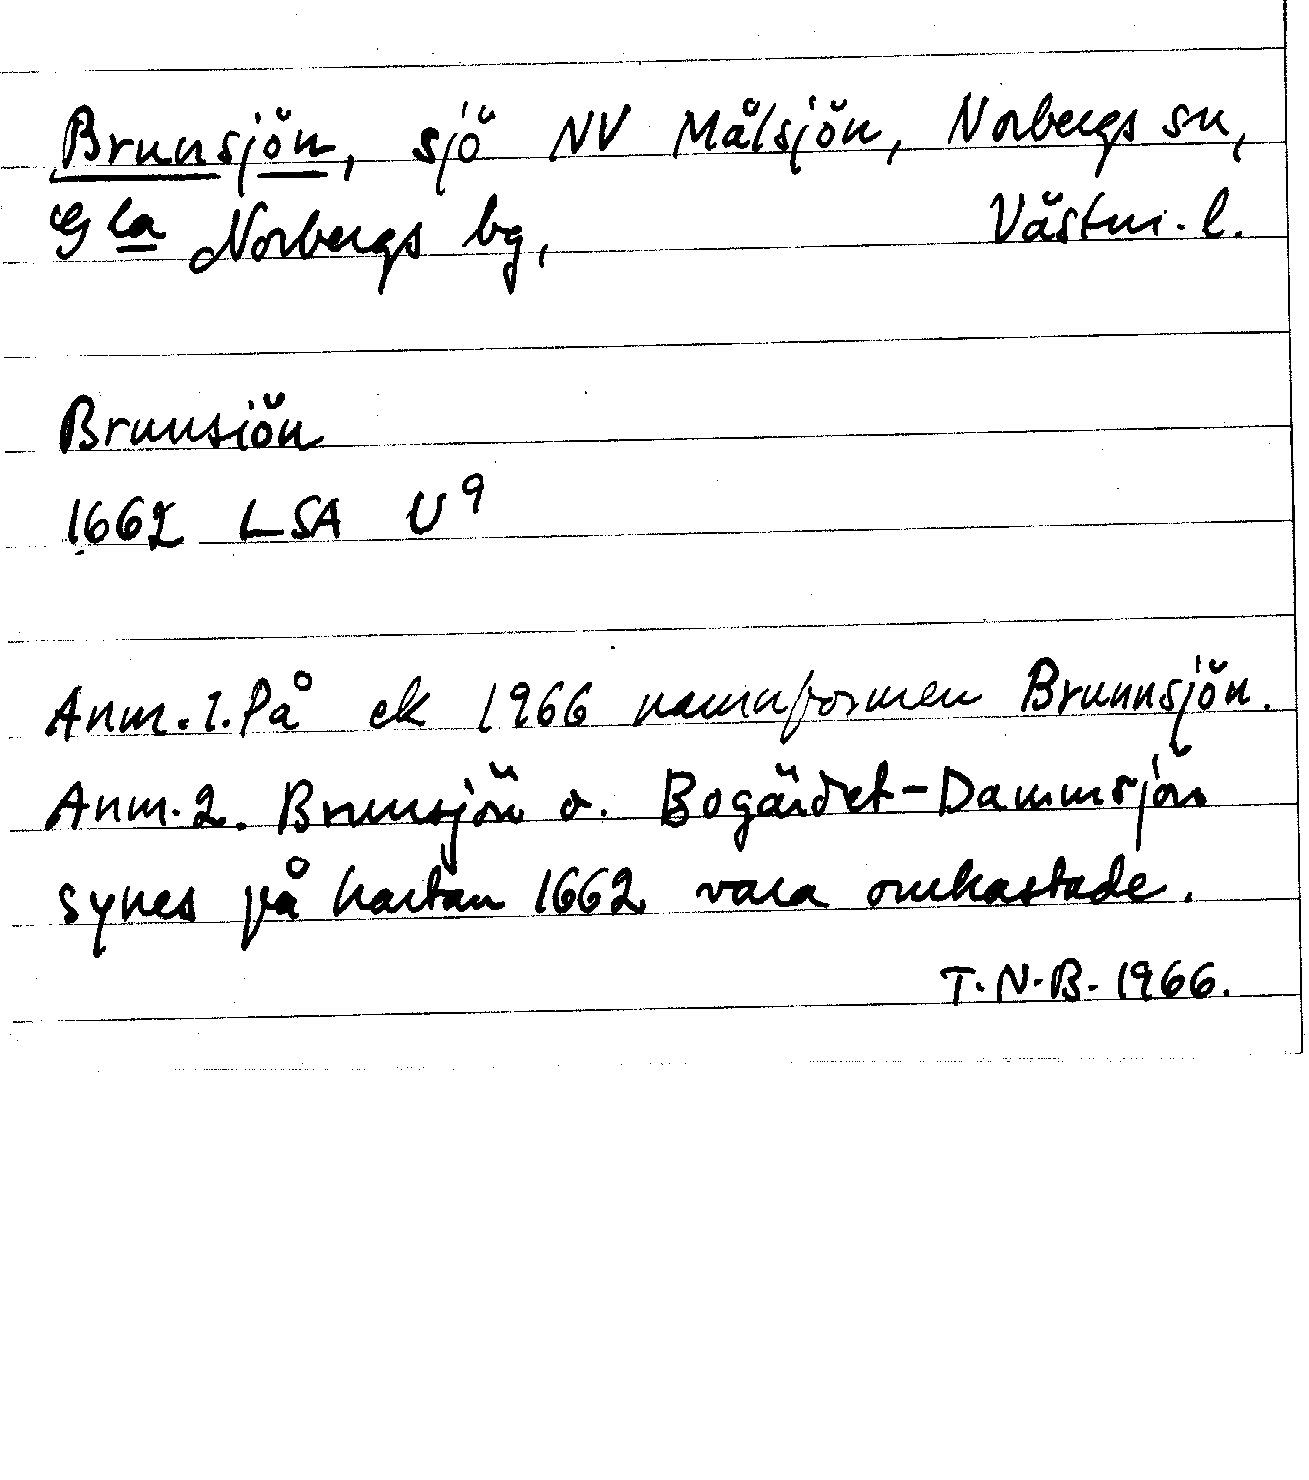 Brunsjön, sjö NV Målsjön, Norbergs sn,
Gla Norbergs bg, Västm. l.
Brunsiön
1662 LSA U9
Anm. 1. På ek 1966 namnformen Brunnsjön.
Anm. 2. Brunsjön o. Bogärdet-Dammsjön
synes på kartan 1662 vara omkastade.
T.N.B. 1966.